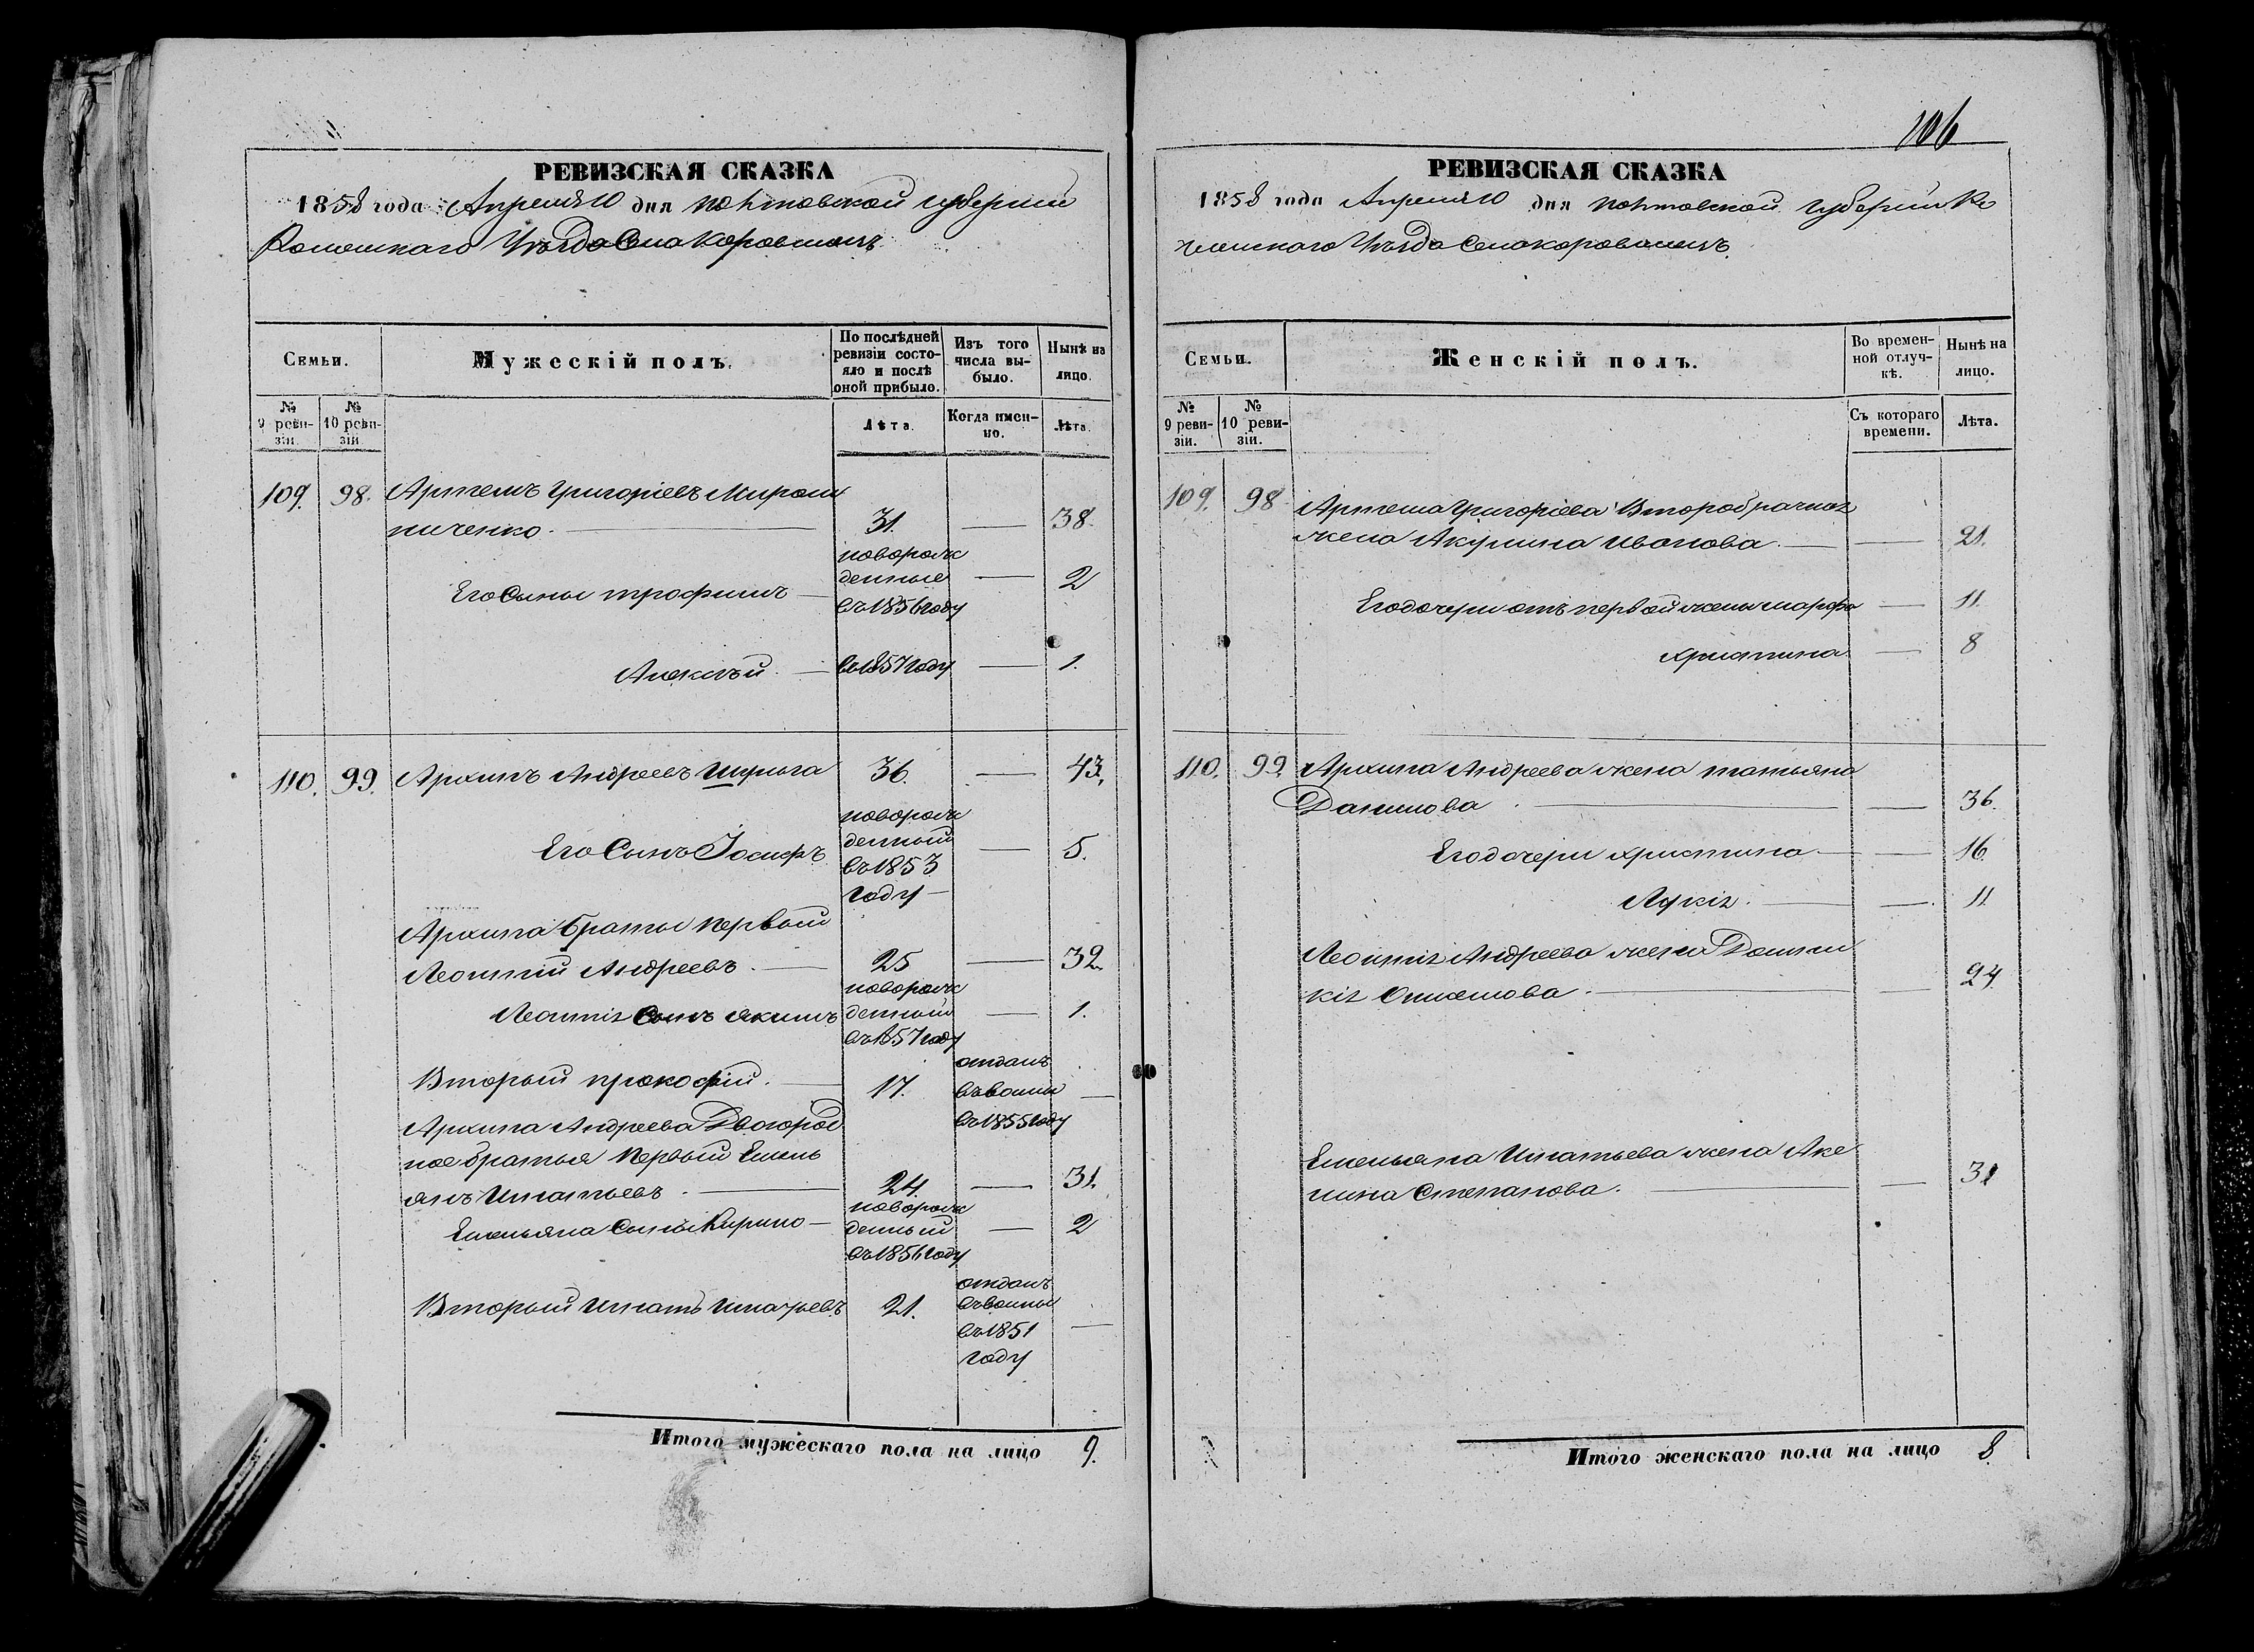 106
РЕВИЗСКАЯ СКАЗКА
1858 года Апреля 10 дня Полтавской губернии
Роменскаго Уѣзда Села Коровинецъ
Семьи.
Мужескій полъ.
По послѣдней ревизіи состояло и послѣ оной прибыло.
Изъ того числа выбыло.
Нынѣ на лицо.
№ 9 ревизіи.
№ 10 ревизіи.
Лѣта.
Когда именно.
Лѣта.
109. 98. Артемъ Григоріевъ Мирош
ниченко 31. 38.
Его Сыны трофимъ
новорож
денные
въ 1856 году
2
Алексѣй въ 1857 году 1.
110. 99. Архипъ Андреевъ Шульга 36. 43.
Его Сынъ Іосифъ
новорож
денный
въ 1853
году
5.
Архипа братья первый
Леонтій Андреевъ 25 32.
Леонтія Сынъ Якимъ
новорож
денный
въ 1857 году
1.
Вторый прокофій 17.
отданъ
въ воины
въ 1855 году
Архипа Андреева Двоюрод
ное братья первый Емель
янъ Игнатьевъ 24. 31.
Емельяна Сынъ Кирило
новорож
денный
въ 1856 году
2
Вторый Игнатъ Игнатьевъ 21.
отданъ
въ воины
въ 1851
году
Итого мужескаго пола на лицо 9.
РЕВИЗСКАЯ СКАЗКА
1858 года Апреля 10 дня Полтавской губерніи Ро
менскаго Уѣзда Села Коровинецъ.
Семьи.
Женскій полъ.
Во временной отлучкѣ.
Нынѣ на лицо.
№ 9 ревизіи.
№ 10 ревизіи.
Съ котораго времени.
Лѣта.
109. 98 Артема Григоріева Второбрачная
жена Акулина Иванова 21.
Его дочери отъ первой жены марфа 11.
христина 8
110. 99. Архипа Андреева жена татьяна
Данилова 36.
Его дочери христина 16.
Лукія 11
Леонтія Андреева жена Домни
кія 24
Емельяна Игнатьева жена Аке
лина Степанова. 31
Итого женскаго пола на лицо 8.